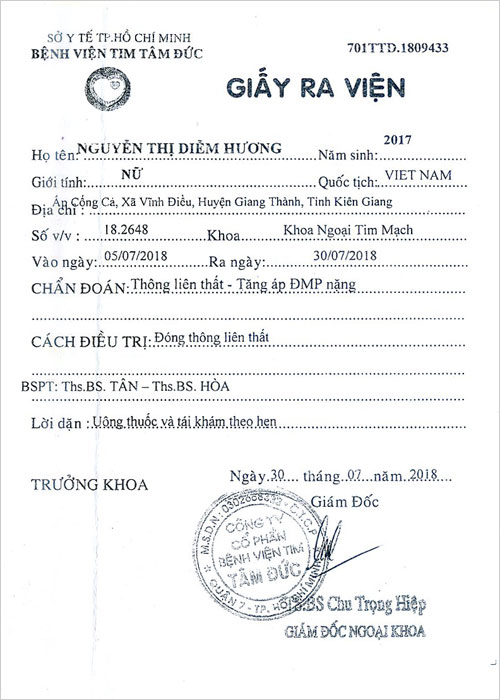 SỞ Y TẾ TP.HỒ CHÍ MINH
BỆNH VIỆN TIM TÂM ĐỨC
701TTD.1809433
GIẤY RA VIỆN
Họ tên: NGUYỄN THỊ DIỄM HƯƠNG Năm sinh: 2017
Giới tính: NỮ Quốc tịch: VIET NAM
Địa chỉ : Ấp Cống Cả, Xã Vĩnh Điều, Huyện Giang Thành, Tỉnh Kiên Giang
Số v/v : 18.2648 Khoa Khoa Ngoại Tim Mạch
Vào ngày: 05/07/2018 Ra ngày: 30/07/2018
CHẨN ĐOÁN: Thông liên thất - Tăng áp ĐMP nặng
CÁCH ĐIỀU TRỊ: Đóng thông liên thất
BSPT: Ths.BS. TÂN – Ths.BS. HÒA
Lời dặn : Uống thuốc và tái khám theo hẹn
Ngày 30 tháng 07 năm 2018
TRƯỞNG KHOA Giám Đốc
M.S.D.N: - C.T.C.P
CÔNG TY
CỔ PHẦN
BỆNH VIỆN TIM
TÂM ĐỨC
QUẬN 7 - TP. HỒ CHÍ MINH
BS Chu Trọng Hiệp
GIÁM ĐỐC NGOẠI KHOA